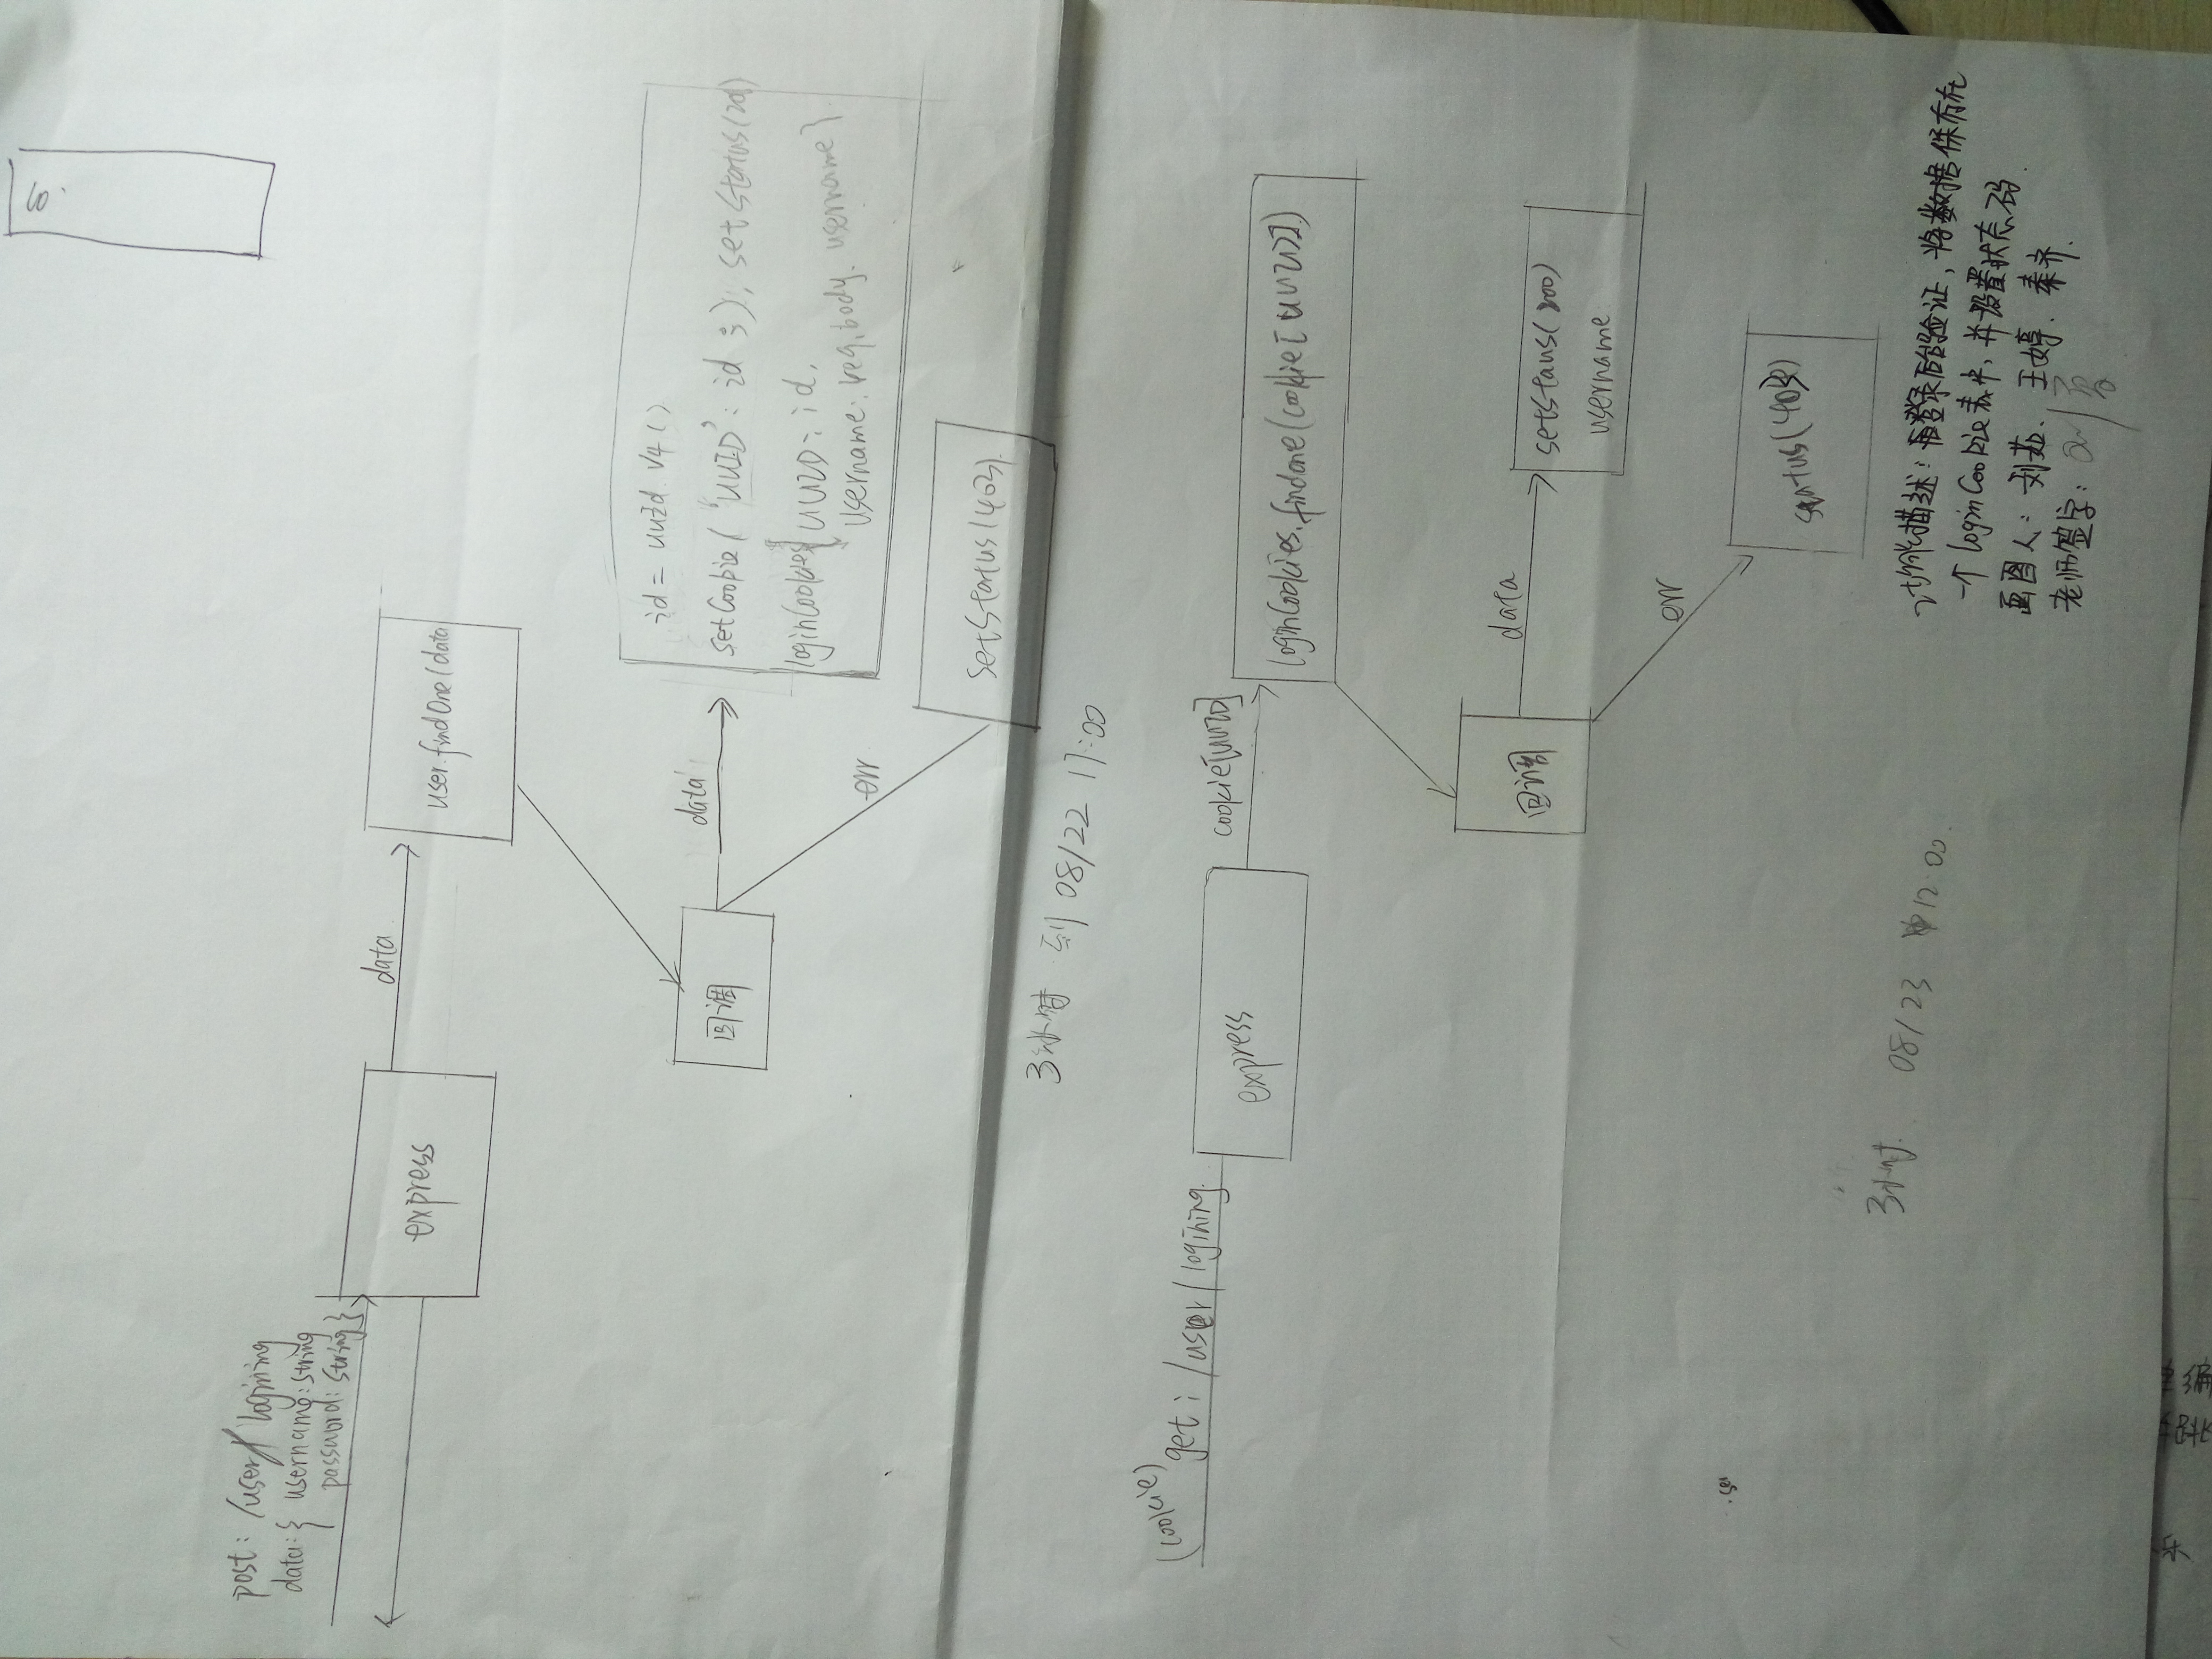 5.
post: /user/logining
data: { username: string
password: string }
express
data
user.findOne(data
回调
data
err
id = uuid.v4()
setCookie('UUID': id });setStatus(200)
loginCookies{UUID: id,
username: req.body.username}
setStatus(403).
3小时 到 08/22 17:00
(cookie) get: /user/logining.
express
cookie[UUID]
loginCookies.findOne(cookie[UUID])
回调
data
setStatus(200)
username
err
status(403)
3小时. 08/23 12:00.
功能描述:登录后台验证,将数据保存在
一个loginCookie表中,并设置状态码.
画图人:刘茹、王婷、秦齐.
老师签字: